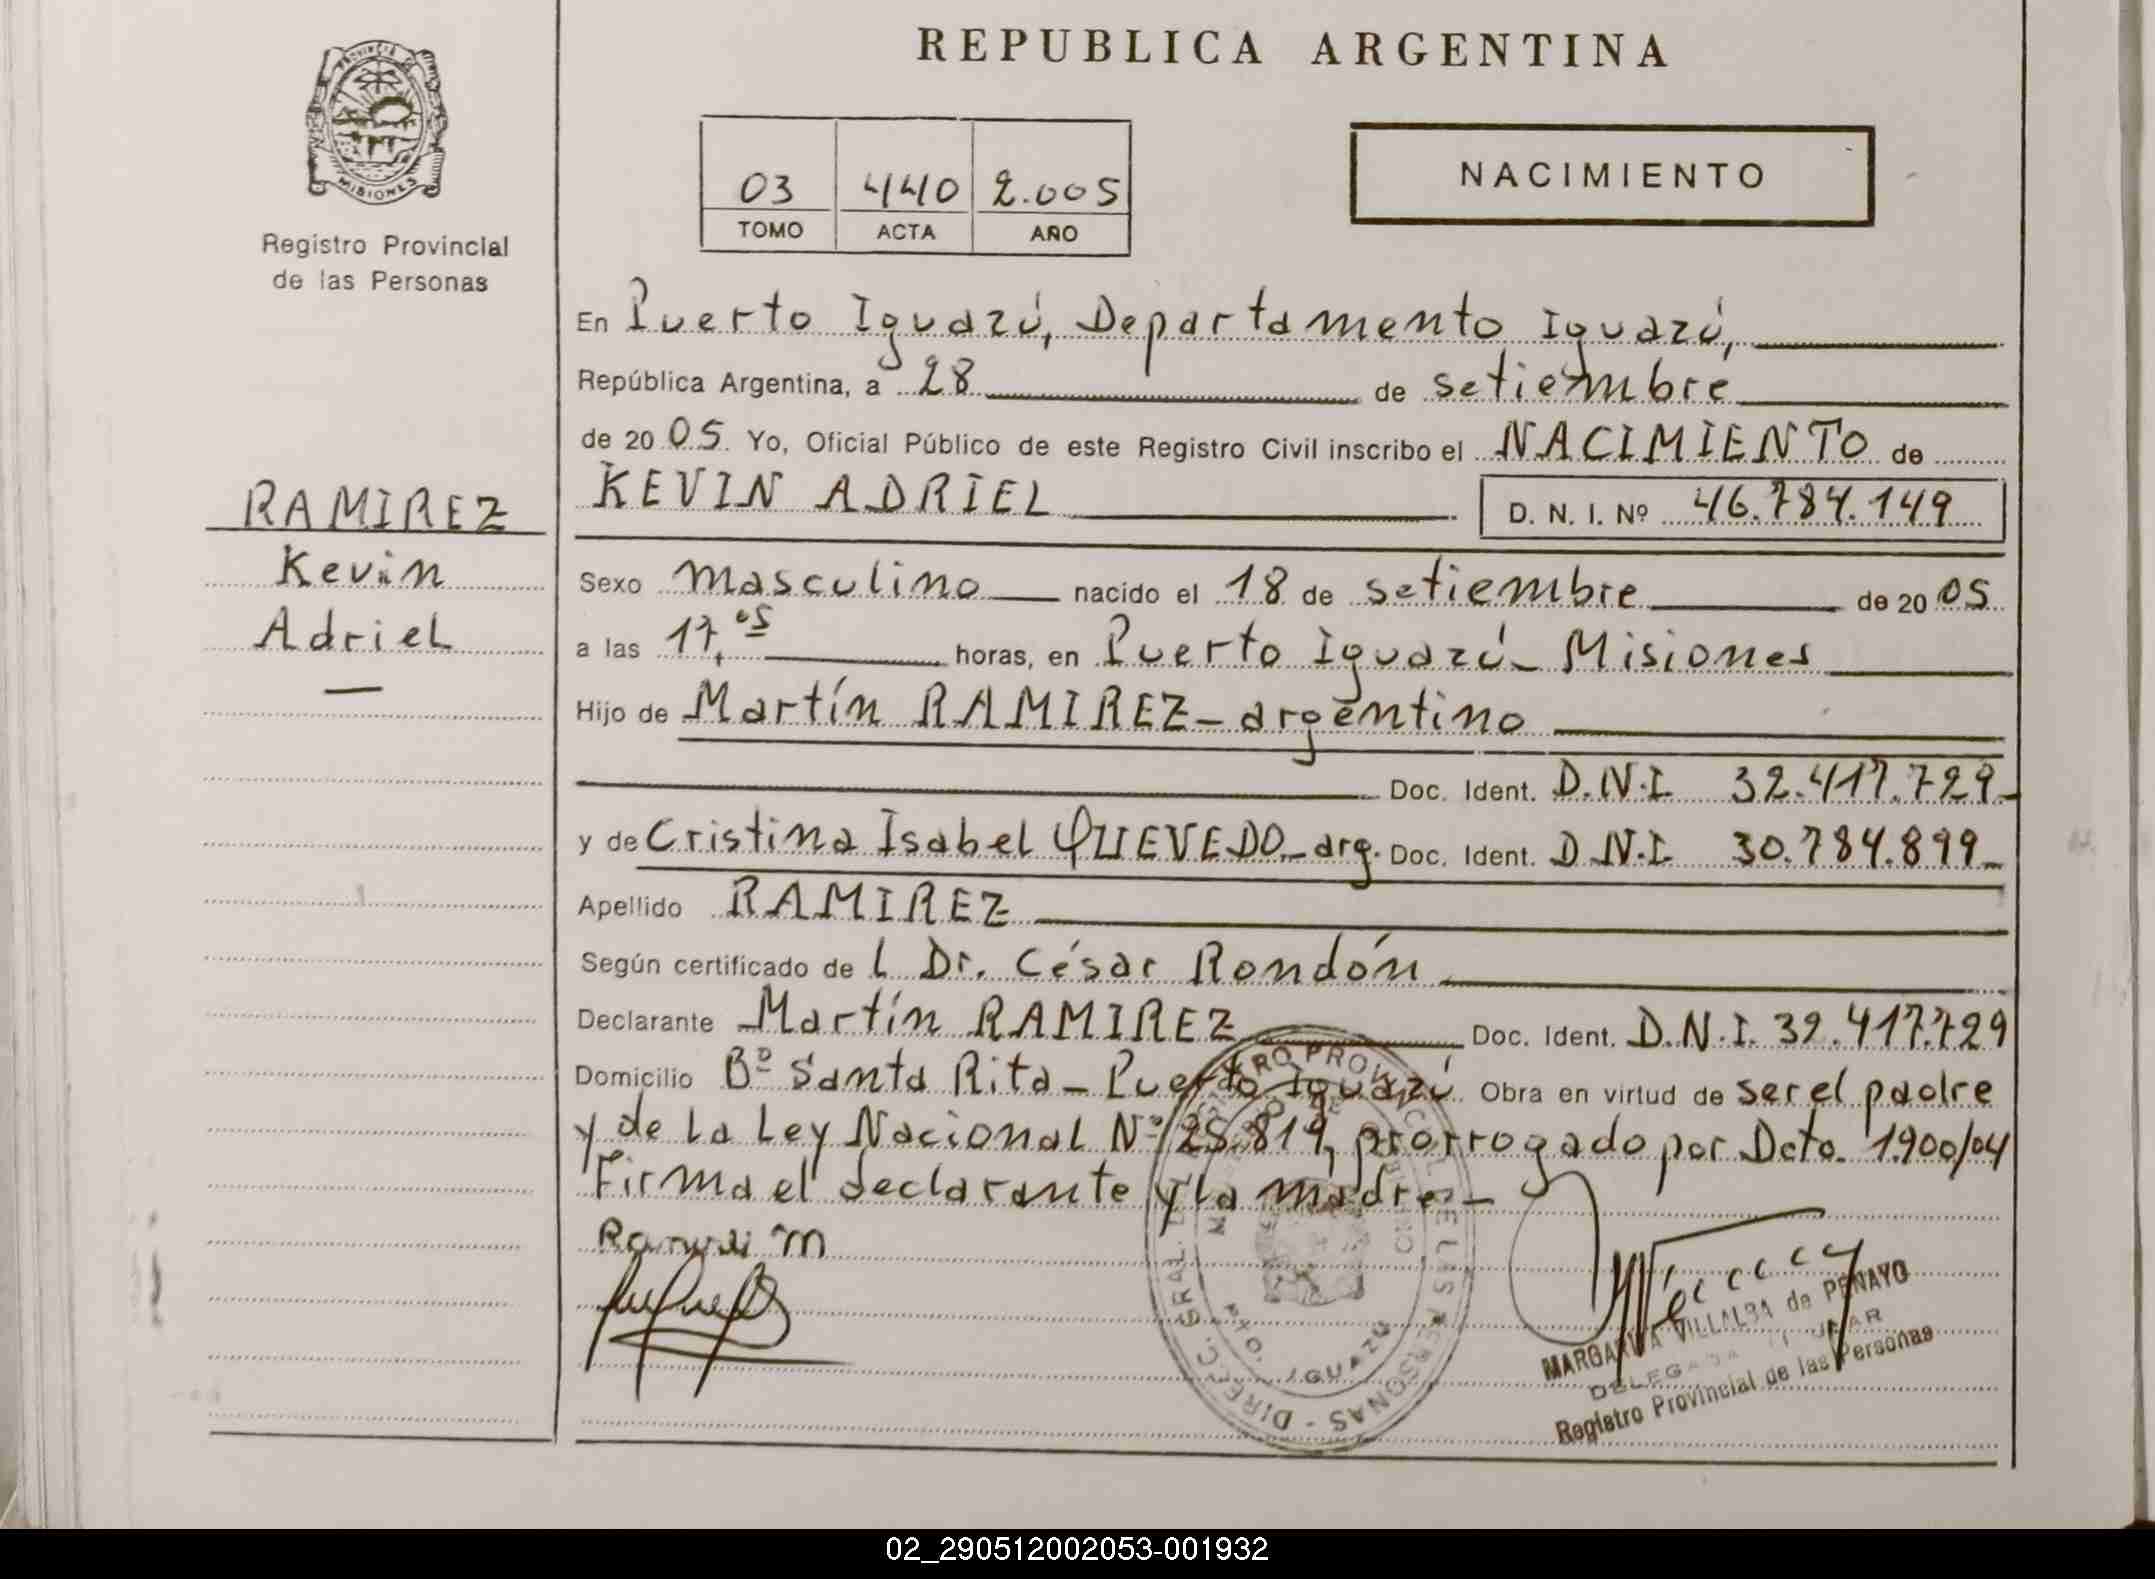 REPUBLICA ARGENTINA
PROVINCIA DE
MISIONES
Registro Provincial
de las Personas
03 440 2.005
TOMO ACTA AÑO
NACIMIENTO
RAMIREZ
Kevin
Adriel
—
En Puerto Iguazú, Departamento Iguazú,
República Argentina, a 28 de setiembre
de 2005. Yo, Oficial Público de este Registro Civil inscribo el NACIMIENTO de
KEVIN ADRIEL D. N. I. Nº 46.784.149
Sexo masculino nacido el 18 de setiembre de 2005
a las 17,05 horas, en Puerto Iguazú - Misiones
Hijo de Martín RAMIREZ - argentino
Doc. Ident. D.N.I 32.417.729-
y de Cristina Isabel QUEVEDO - arg. Doc. Ident. D.N.I 30.784.899-
Apellido RAMIREZ
Según certificado de l Dr. César Rondón
Declarante Martín RAMIREZ Doc. Ident. D.N.I. 32.417.729
Domicilio Bº Santa Rita - Puerto Iguazú Obra en virtud de ser el padre
y de la Ley Nacional Nº 25.819, prorrogado por Dcto. 1.900/04
Firma el declarante y la madre. -
Ramirez M
DIREC. GRAL. REGISTRO PROVINCIAL DE LAS PERSONAS
PTO. IGUAZU
MARGARITA VILLALBA de PENAYO
DELEGADA TITULAR
Registro Provincial de las Personas
02_290512002053-001932